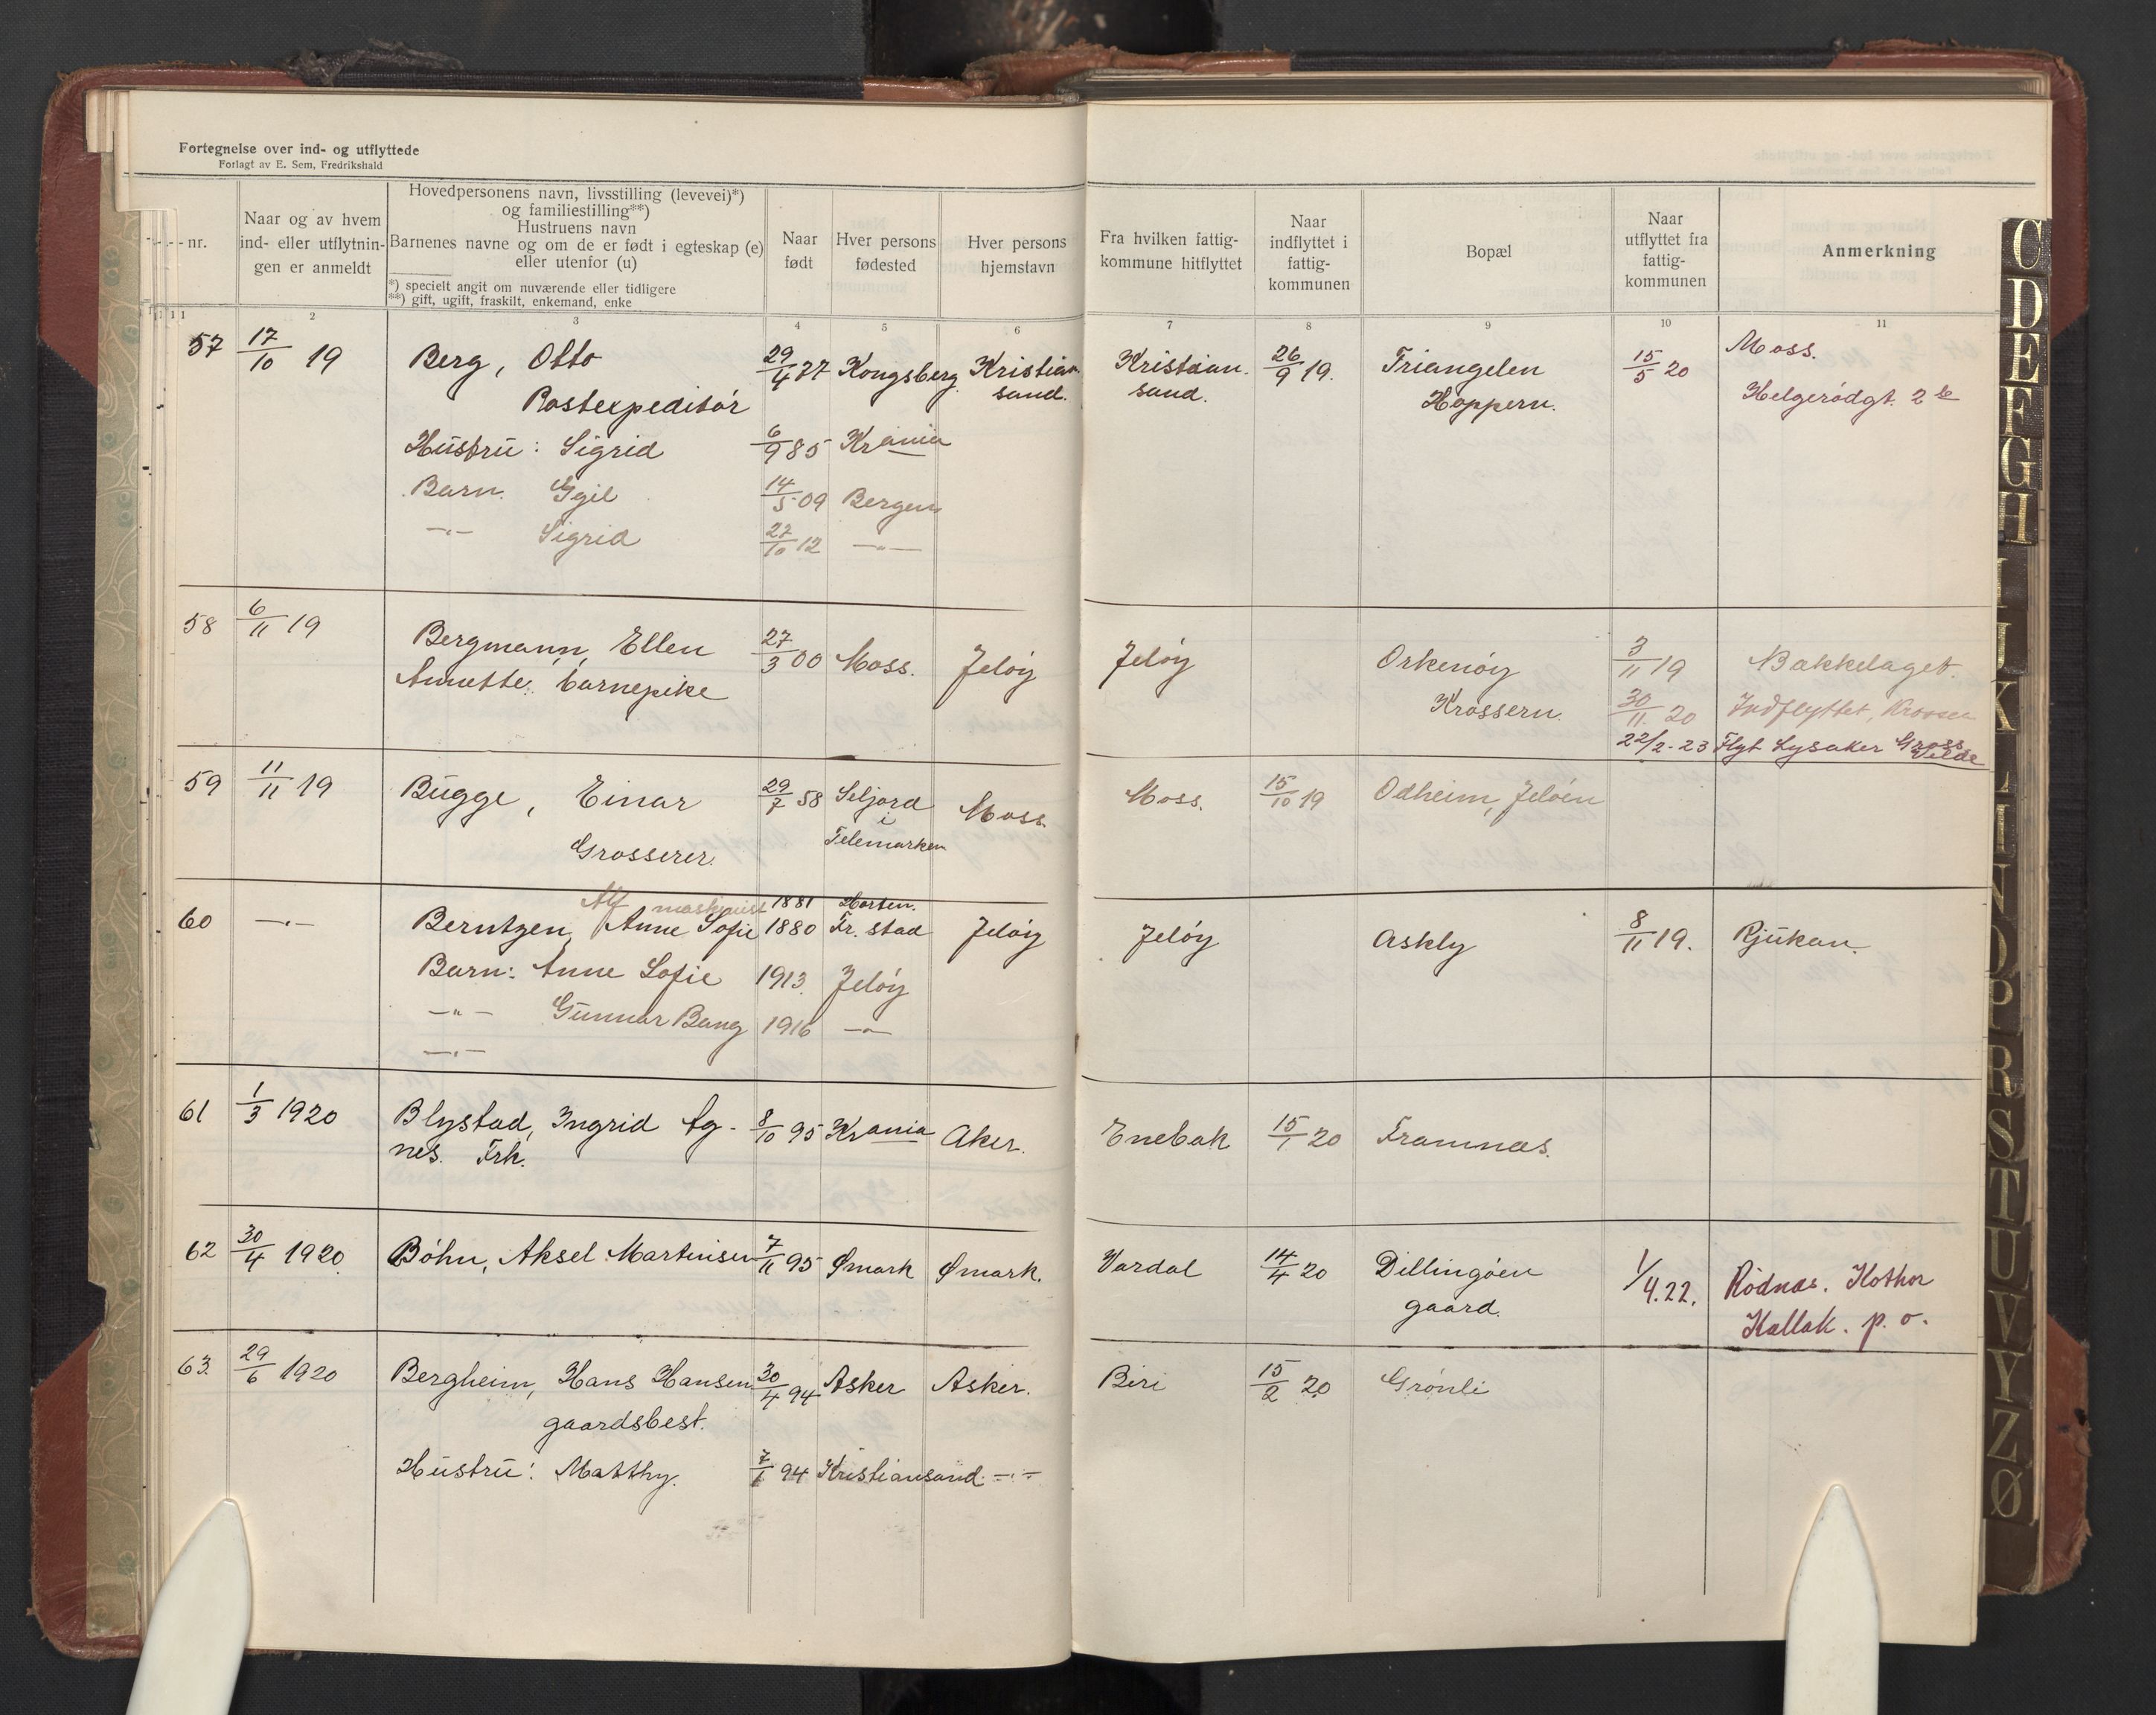 Fortegnelse over ind- og utflyttede
Forlagt av E. Sem, Fredrikshald
nr.
Naar og av hvem
ind- eller utflytnin-
gen er anmeldt
Hovedpersonens navn, livsstilling (levevei)*)
og familiestilling**)
Hustruens navn
Barnenes navne og om de er født i egteskap (e)
eller utenfor (u)
*) specielt angit om nuværende eller tidligere
**) gift, ugift, fraskilt, enkemand, enke
Naar
født
Hver persons
fødested
Hver persons
hjemstavn
Fra hvilken fattig-
kommune hitflyttet
Naar
indflyttet i
fattig-
kommunen
Bopæl
Naar
utflyttet fra
fattig-
kommunen
Anmerkning
1 2 3 4 5 6 7 8 9 10 11
57 17/10 19 Berg, Otto 29/4 77 Kongsberg Kristian- Kristian- 26/9 19. Triangelen 15/5 20 Moss.
Postexpeditör sand. sand. Hoppern. Helgerödgt. 2 b
Hustru: Sigrid 6/9 85 Kr ania
Barn. Egil 14/5 09 Bergen
—"— Sigrid 27/10 12 —"—
58 6/11 19 Bergmann, Ellen 27/3 00 Moss. Jelöy Jelöy Orkenöy 3/11 19 Bækkelaget.
Annette, barnepike Krossern. 30/11. 20 Indflyttet, Krossern
22/2-23 Flyt Lysaker Gross Velde
59 11/11 19 Bugge, Einar 29/7 58 Seljord i Moss. Moss. 15/10 19 Odheim, Jelöen
Grosserer. Telemarken
Alf maskinist 1881 Horten.
60 —"— Berntzen, Anne Sofie 1880 Fr. stad Jelöy Jelöy Askly 8/11 19. Rjukan.
Barn: Anne Sofie 1913. Jelöy
—"— Gunnar Bang 1916 —"—
—"—
61 1/3 1920 Blystad, Ingrid Ag- 8/10 95 Kr ania Aker. Enebak 15/1 20 Framnæs.
nes. Frk.
62 30/4 1920. Böhn, Aksel Martinsen 7/11 95 Ømark Ømark. Vardal 14/4 20 Dillingöen 1/4.22. Rödnæs. Kothor
gaard. Kallak. p. o.
63. 29/6 1920 Bergheim, Hans Hansen 30/4 94 Asker Asker. Biri 15/2 20 Grönli
gaardsbest.
Hustru: Matthy. 7/1 94 Kristiansand. —"—
C
D
E
F
G
H
I
J
K
L
M
N
O
P
R
S
T
U
V
Y
Z
Ø